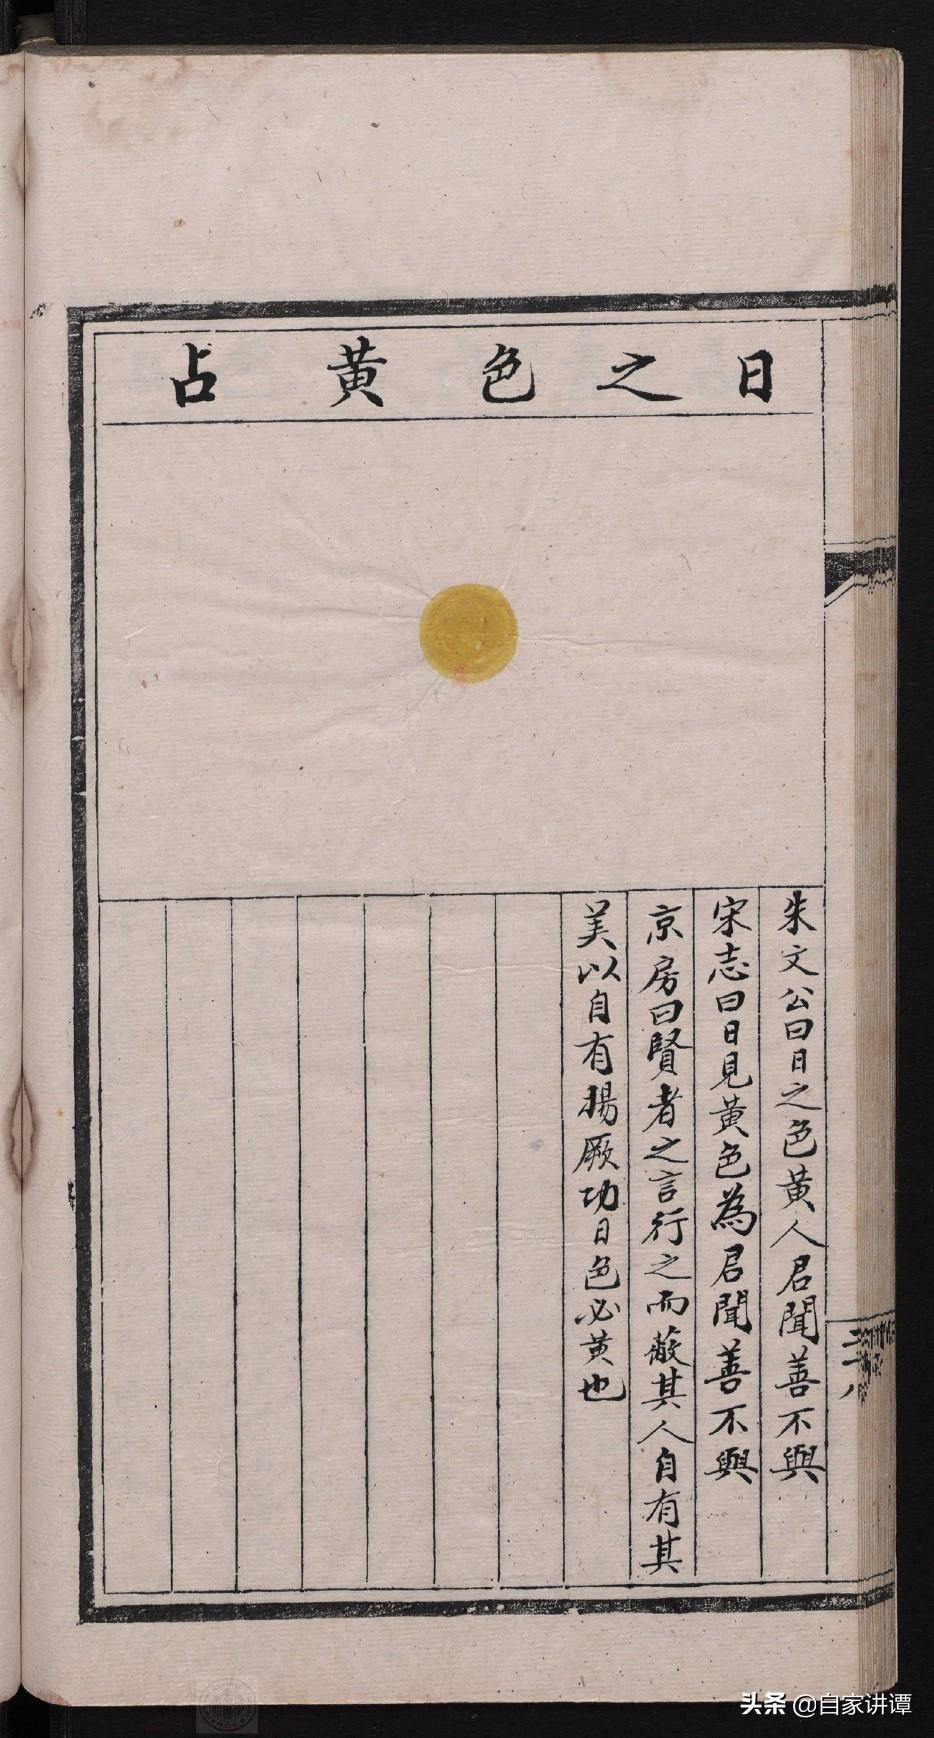 日之色黄占
朱文公曰日之色黄人君聞善不興
宋志曰日見黄色為君聞善不興
京房曰賢者之言行之而蔽其人自有其
美以自有揚厥功日色必黄也
头条 @自家讲谭